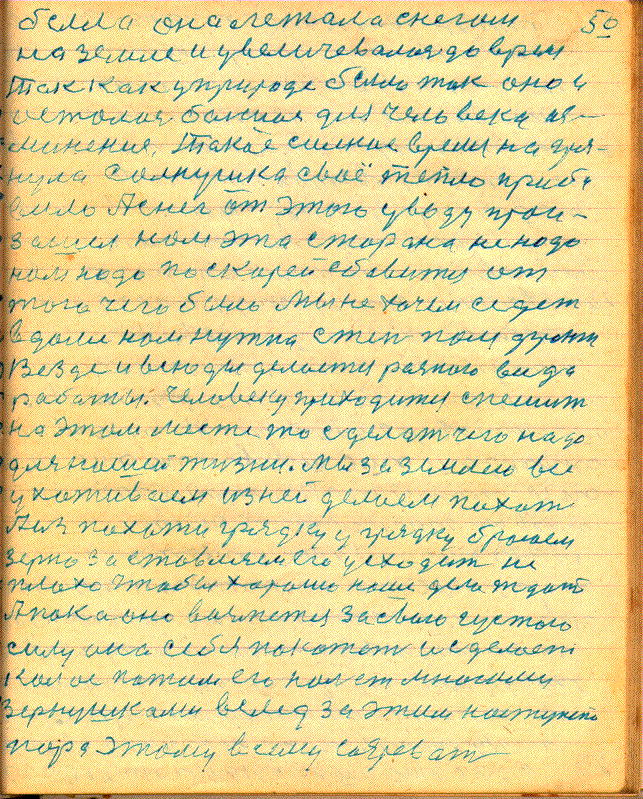 белла она летала снегом 50
на земле и увеличевалая до врем
Так как у природе было так оно и
осталоя боязноя для человека из-
минения. Такае силноя время на гря-
нула солнушка своё тепло приба
вило А снег от этого уводу прои-
зашел нам эта сторана ненадо
нам надо поскарей сбавится от
того чего было Мы не хочем седет
вдоли нам нужна степ нам
Везде и всюды делается разного вида
работы. Человеку приходится спешит
на этом месте то сделат чего надо
для нашей жизни. Мы за землею все
ухоживаем из ней делаем похот
А из похоти грядку у грядку бросаем
зерно заставляем его усходит не
плохо чтобы харашо наше дела ждат
А пока оно вазмется за сваю густою
силу она себя покажет и сделает
колос потом его нолет многоми
зернушками вслед за этим наступает
пора этому всему сазреват